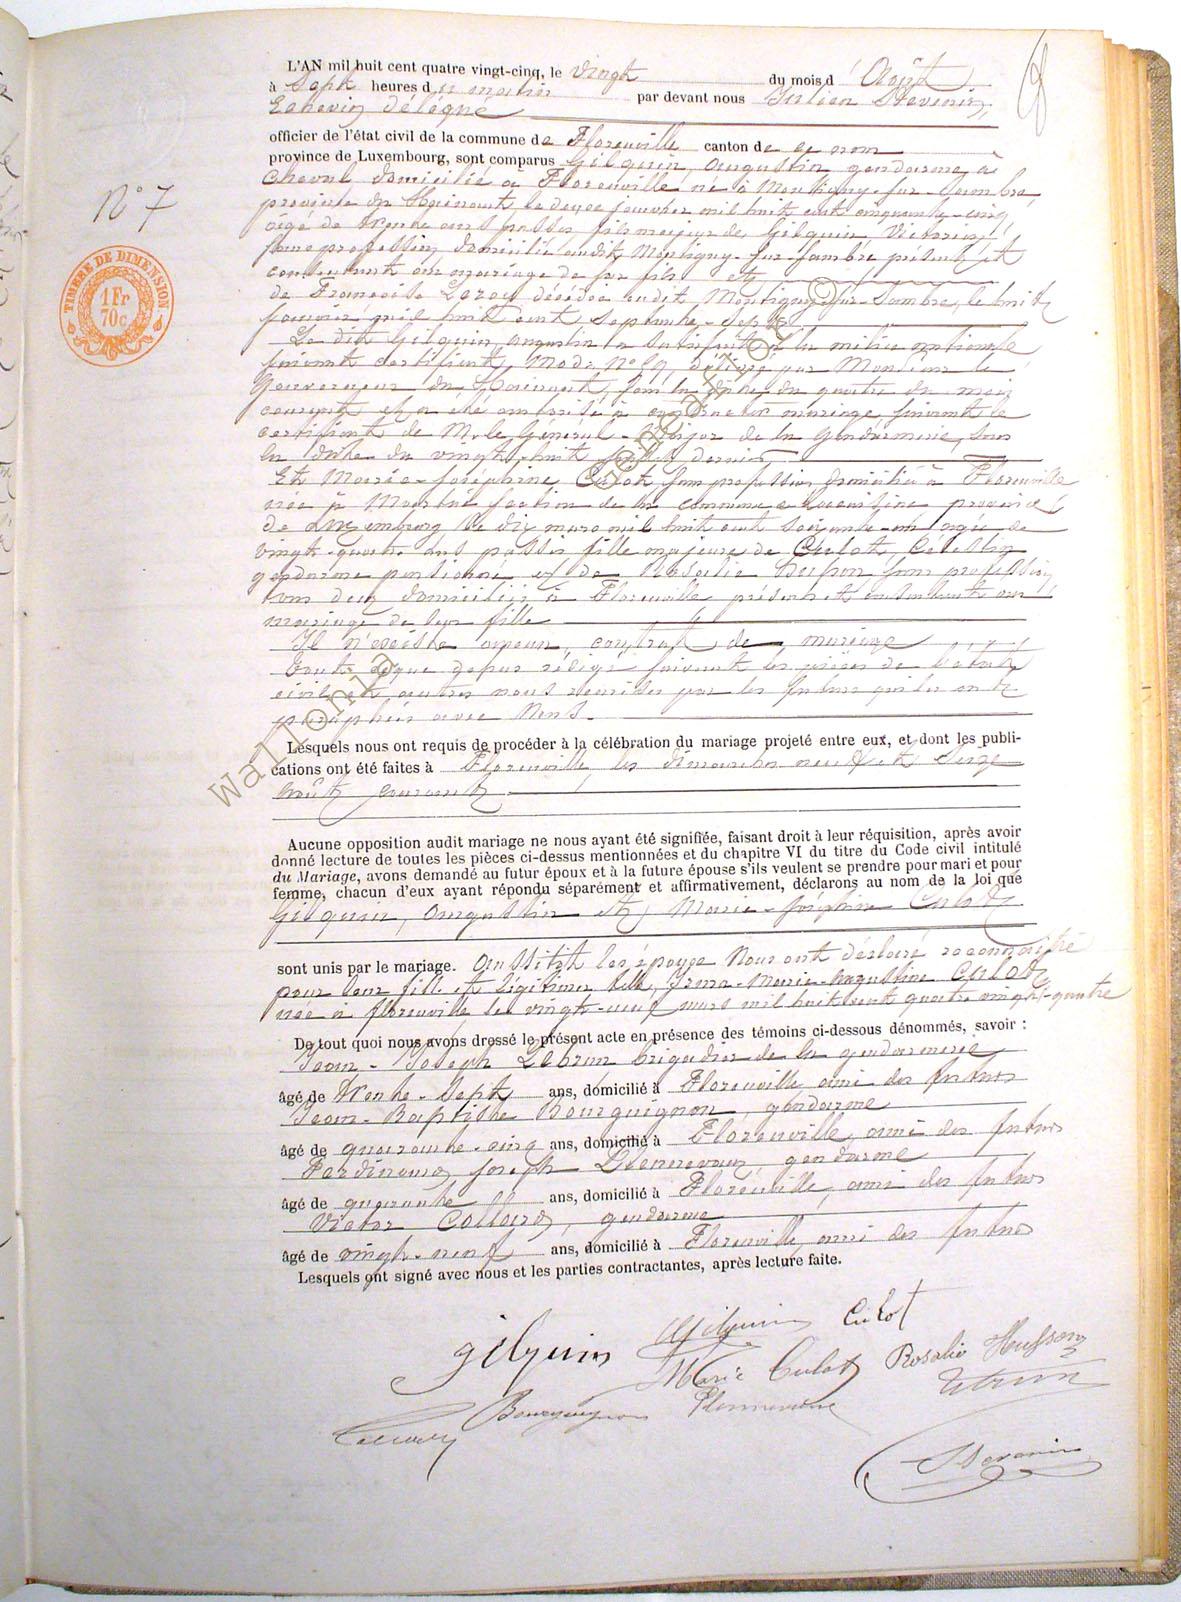 L'AN mil huit cent quatre vingt-cinq, le vingt du mois d'Août
à Sept heures du matin par devant nous Julien Stevenin,
Echevin délégué
officier de l'état civil de la commune de Florenville canton de ce nom
province de Luxembourg, sont comparus Gilquin, Augustin, gendarme à
N° 7
Cheval domicilié à Florenville né à Montigny-sur-Sambre
province du Hainaut, le douze janvier mil huit cent cinquante-cinq
âgé de trente ans passés, fils majeur de Gilquin, Victorien,
sans profession, domicilié audit Montigny-sur-Sambre, présent et
consentant au mariage de son fils et
de Françoise Leroy décédée audit Montigny-sur-Sambre, le huit
janvier mil huit cent septante-sept
Le dit Gilquin, Augustin a satisfait à la milice nationale
suivant certificat, Mode N° 59, délivré par Monsieur le
Gouverneur du Hainaut, sous la date du quatre du mois
courant et a été autorisé à contracter mariage suivant le
certificat de M. le Général-Major de la Gendarmerie, sous
la date du vingt-huit juillet dernier
Et Marie-Joséphine Culot sans profession domiciliée à Florenville
née à section de la commune province
de Luxembourg le dix mars mil huit cent soixante-un âgée de
vingt-quatre ans passés fille majeure de Culot, Célestin
gendarme pensionné et de Rosalie sans profession,
tous deux domiciliés à Florenville présents et consentants au
mariage de leur fille
Il n'existe aucun contrat de mariage
Tout ce que dessus rédigé suivant les pièces de l'état
civil et autres nous remises par les futurs qui les ont
paraphées avec Nous.
Lesquels nous ont requis de procéder à la célébration du mariage projeté entre eux, et dont les publi-
cations ont été faites à Florenville, les dimanches neuf et seize
Août courant
Aucune opposition audit mariage ne nous ayant été signifiée, faisant droit à leur réquisition, après avoir
donné lecture de toutes les pièces ci-dessus mentionnées et du chapitre VI du titre du Code civil intitulé
du Mariage, avons demandé au futur époux et à la future épouse s'ils veulent se prendre pour mari et pour
femme, chacun d'eux ayant répondu séparément et affirmativement, déclarons au nom de la loi que
Gilquin, Augustin et Marie-Joséphine Culot
sont unis par le mariage. Aussitôt les époux Nous ont déclaré reconnaître
pour leur fille et légitimer telle, Irma-Marie-Augustine Culot
née à Florenville le vingt-neuf mars mil huit cent quatre vingt-quatre
De tout quoi nous avons dressé le présent acte en présence des témoins ci-dessous dénommés, savoir :
Jean-Joseph Lebrun brigadier de la gendarmerie
âgé de trente-sept ans, domicilié à Florenville ami des futurs
Jean-Baptiste Bourguignon, gendarme
âgé de quarante-cinq ans, domicilié à Florenville, ami des futurs
Ferdinand Joseph gendarme
âgé de quarante ans, domicilié à Florenville, ami des futurs
Victor Collard, gendarme
âgé de vingt-neuf ans, domicilié à Florenville, ami des futurs
Lesquels ont signé avec nous et les parties contractantes, après lecture faite.
gilquin A Gilquin Culot
Marie Culot Rosalie Husson
Bourguignon
Stevenin
TIMBRE DE DIMENSION
1 Fr
70c
Wallonia © Geneanet.org